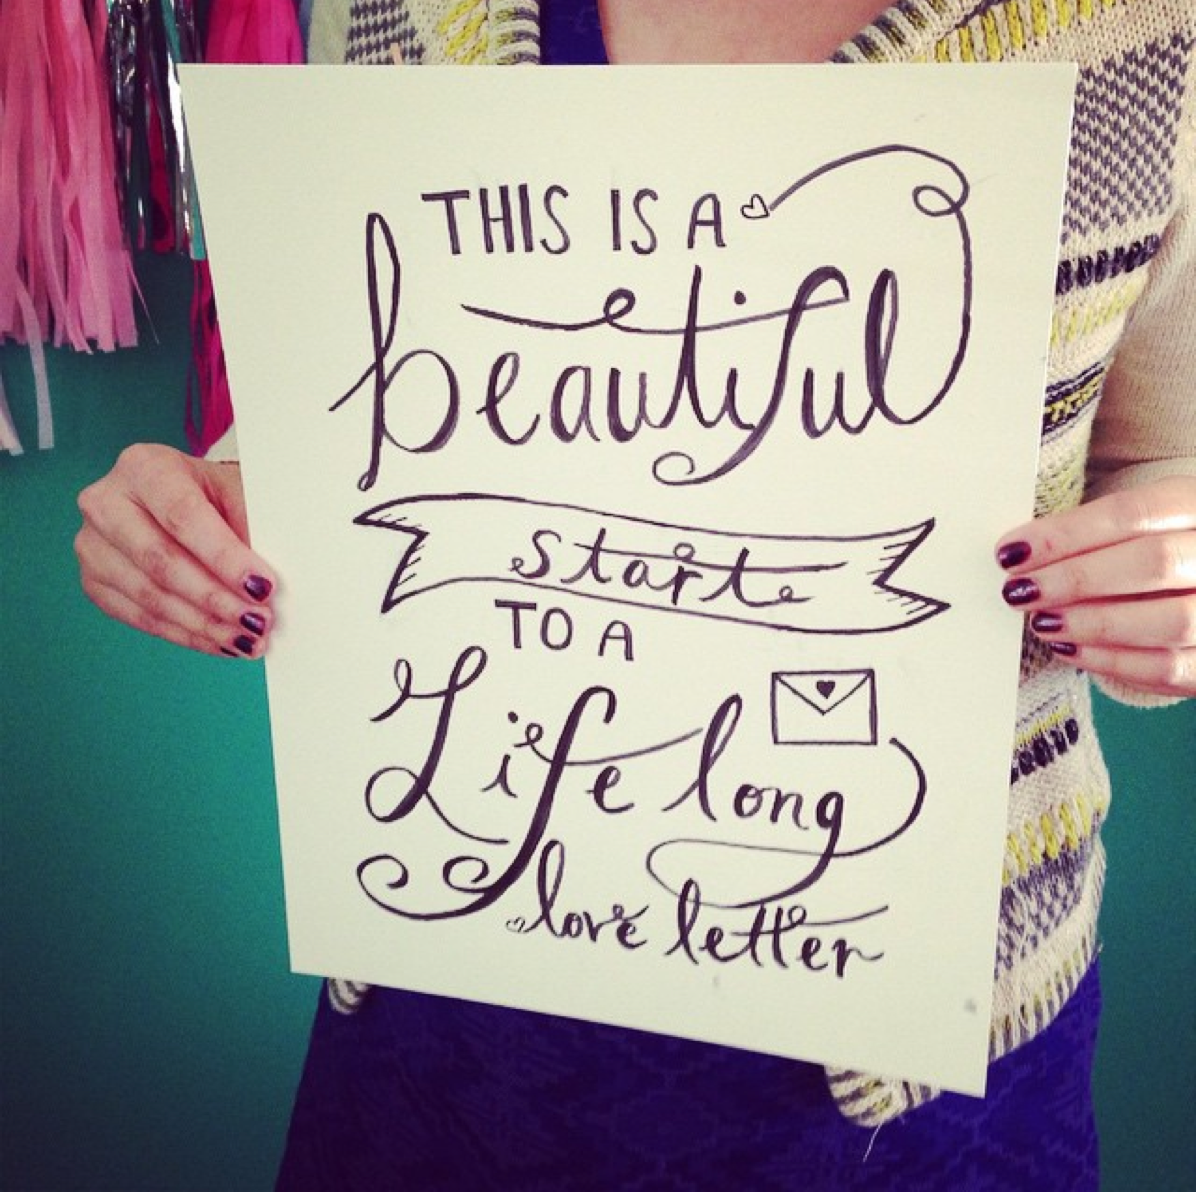 THIS IS A
beautiful
start
TO A
Life long
love letter